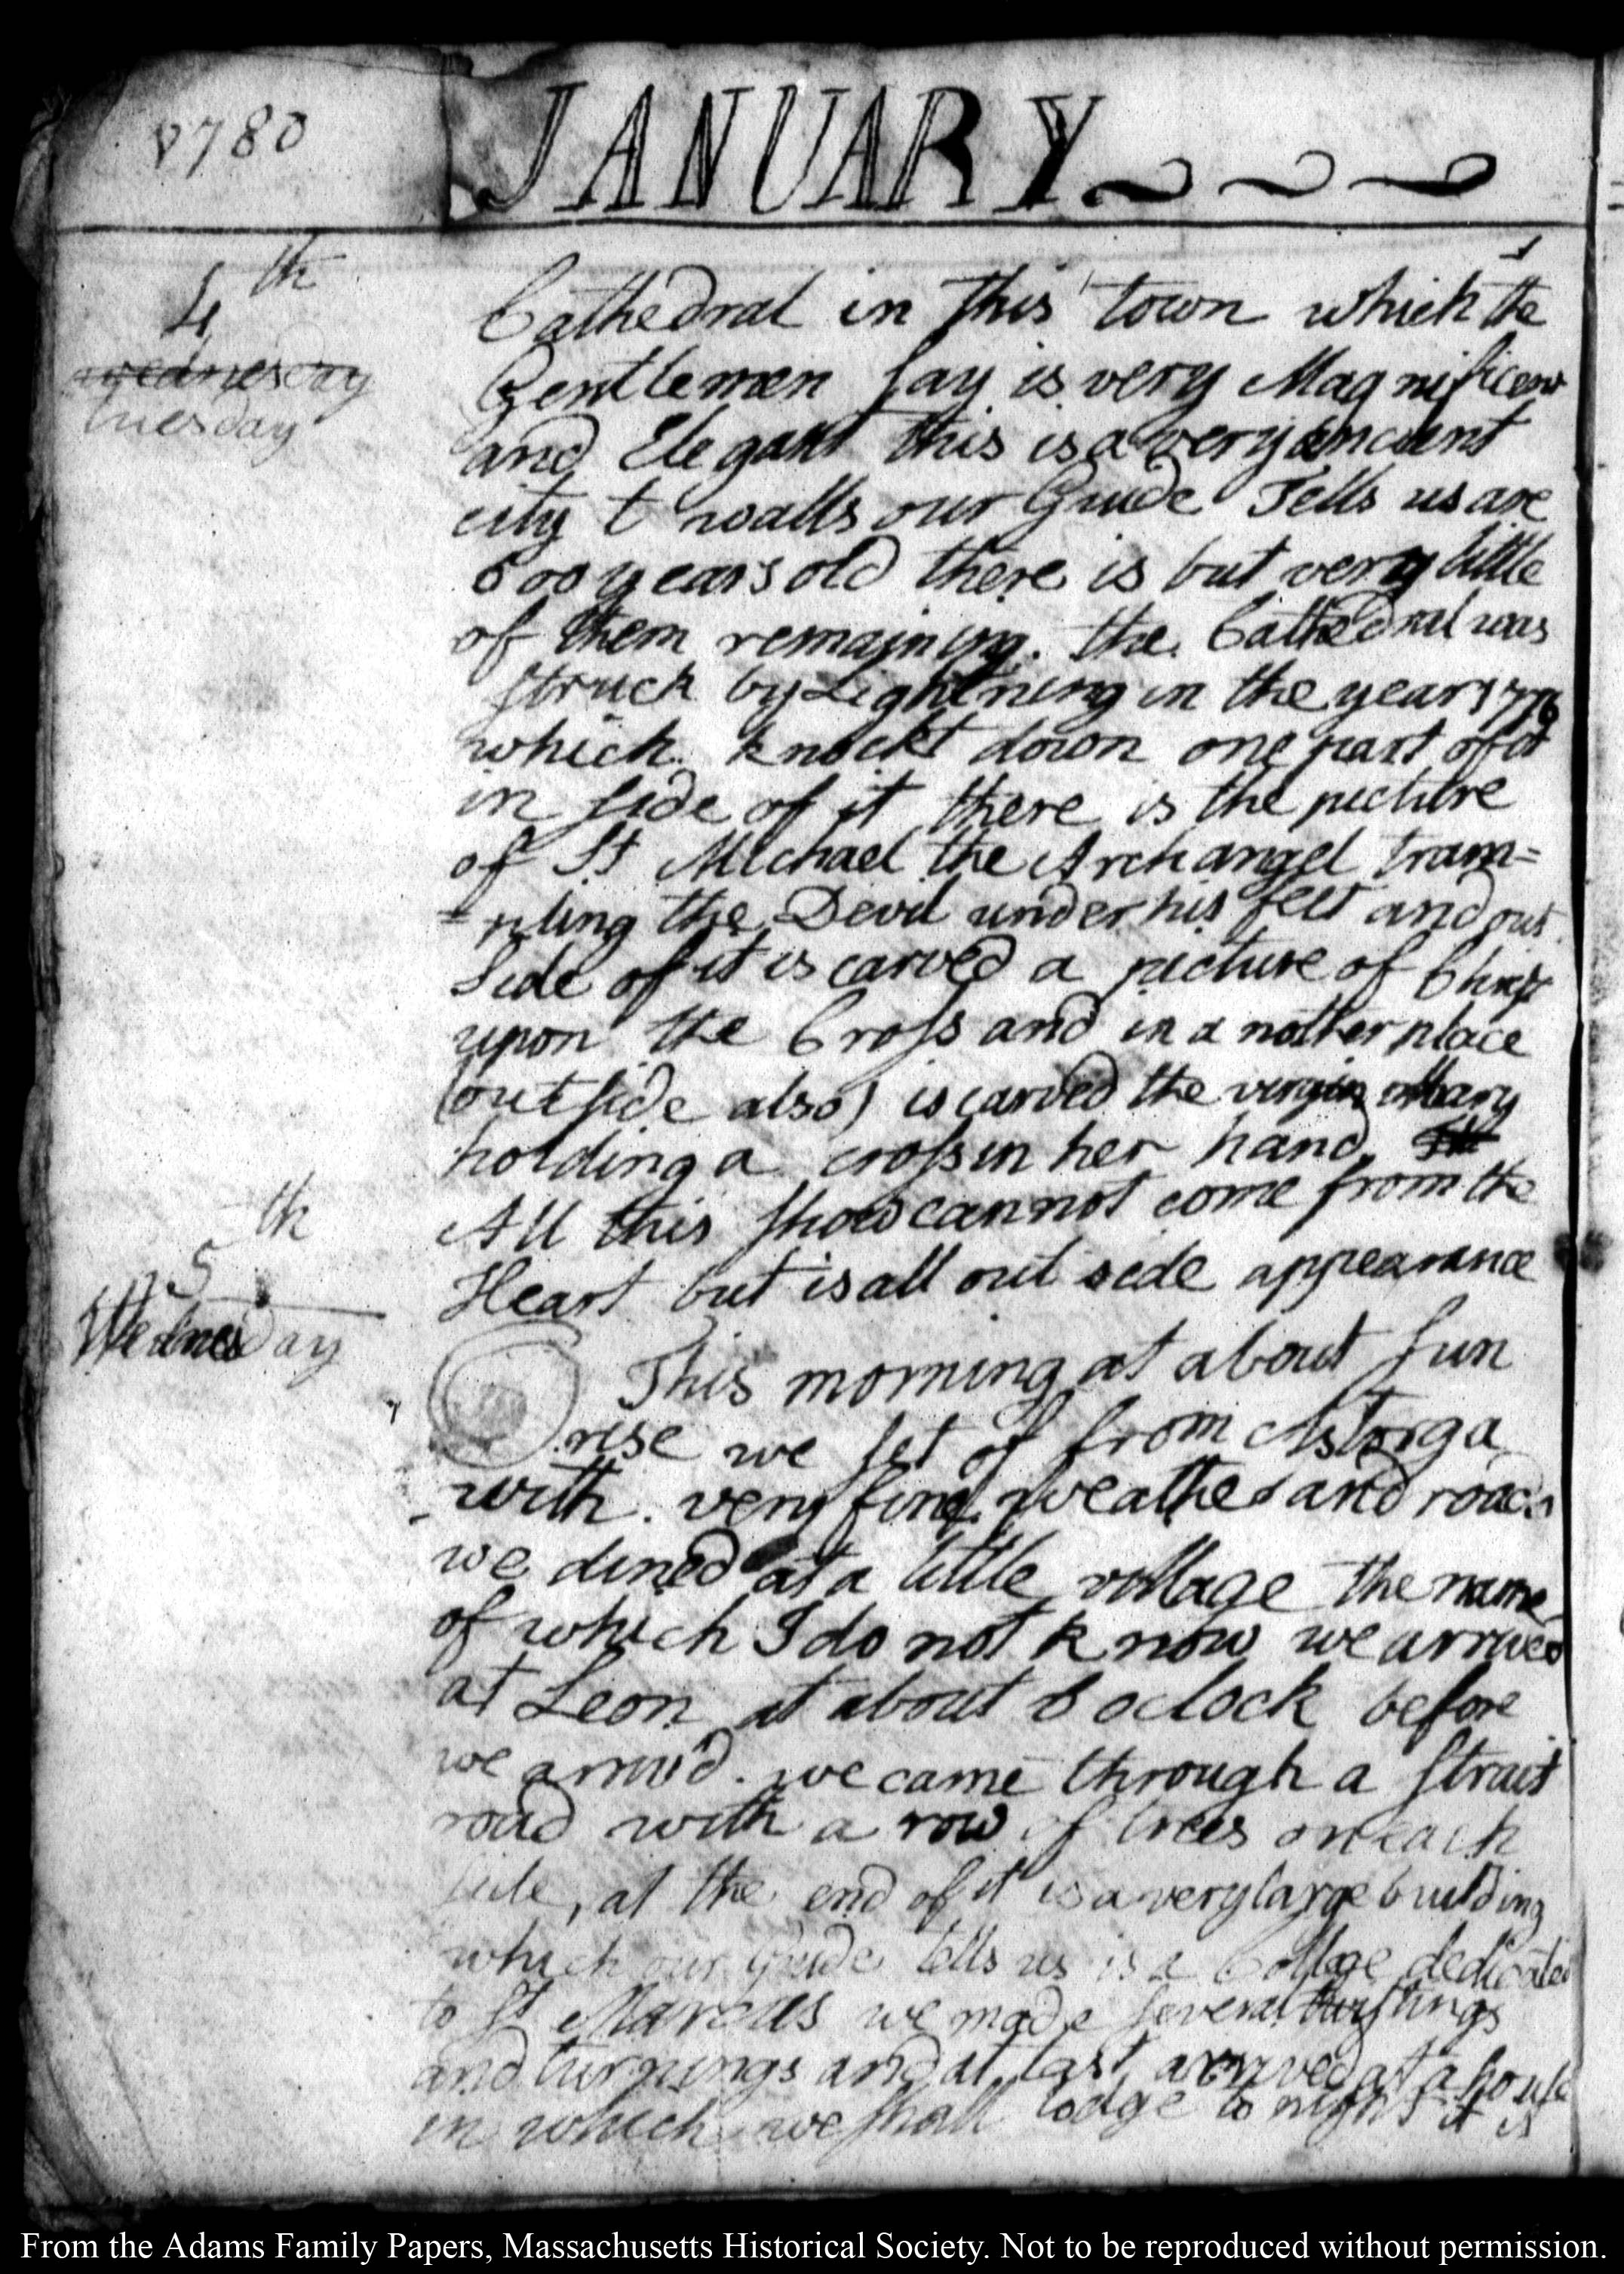 1780
JANUARY
4th
Wednesday
Tuesday
Cathedral in this town which the
Gentlemen say is very Magnificent
and Elegant this is a very ancient
city t walls our Guide Tells us are
600 years old there is but very little
of them remaining. the Cathedral was
struck by Lightning in the year
which knockt down one part of it
in side of it there is the picture
of St Michael the Archangel tram=
=pling the Devil under his feet and out
side of it is carved a picture of Christ
upon the Cross and in a nother place
(outside also) is carved the virgin Mary
holding a cross in her hand
All this show cannot come from the
Heart but is all out side appearance
5th
Wednesday
This morning at about sun
rise we set of from Astorga
with very fine weather and roads
we dined at a little village the name
of which I do not know we arrived
at Leon at about 8 oclock before
we arrivd. we came through a strait
road with a row of trees on each
side, at the end of it is a very large building
which our Guide tells us is a Collage dedicated
to St Marcus we made several twistings
and turnings and at last arrived at a house
in which we shall lodge to night it is
From the Adams Family Papers, Massachusetts Historical Society. Not to be reproduced without permission.